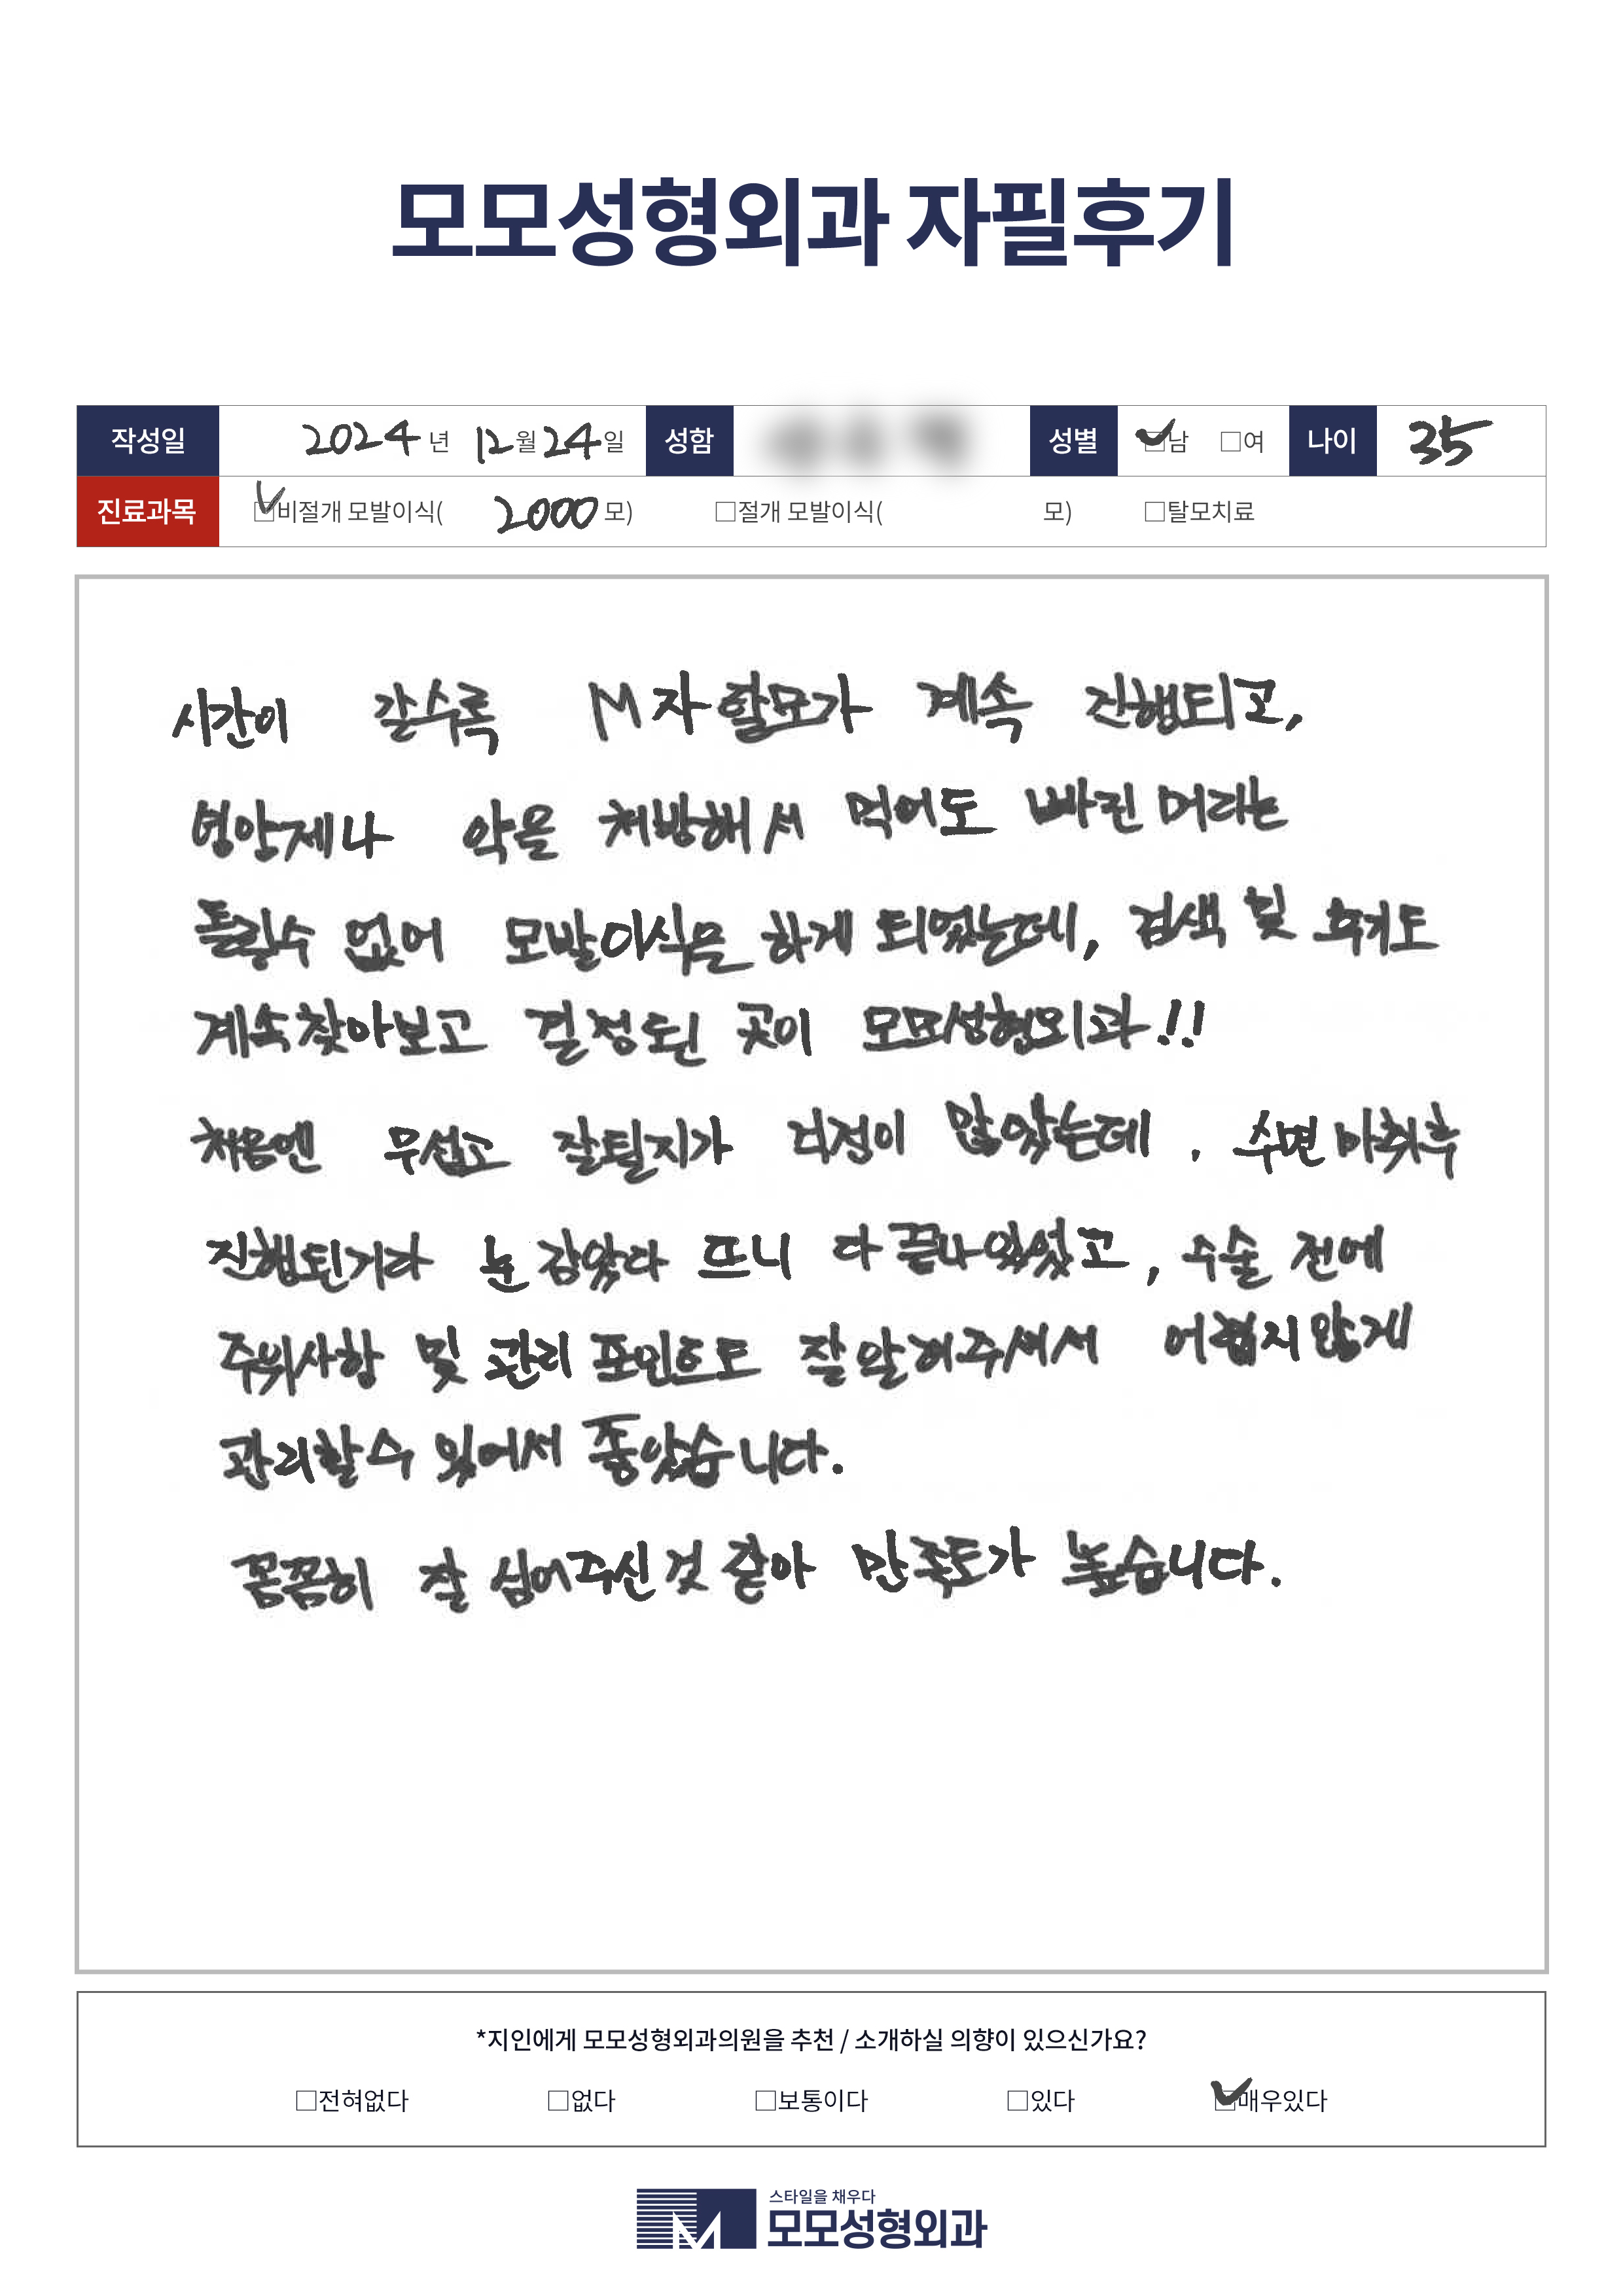 모모성형외과 자필후기
작성일 2024년 12월 24일 성함 성별 ☑남 □여 나이 35
진료과목 ☑비절개 모발이식( 2000 모) □절개 모발이식( 모) □탈모치료
시간이 갈수록 M자탈모가 계속 진행되고,
영양제나 약을 처방해서 먹어도 빠진 머리는
돌릴수 없어 모발이식을 하게 되었는데, 검색 및 후기도
계속찾아보고 결정된 곳이 모모성형외과!!
처음엔 무섭고 잘될지가 걱정이 많았는데. 수면마취후
진행된거라 눈 감았다 뜨니 다 끝나있었고, 수술 전에
주위사항 및 관리 포인트도 잘 알려주셔서 어렵지않게
관리할수 있어서 좋았습니다.
꼼꼼히 잘 심어주신것 같아 만족도가 높습니다.
*지인에게 모모성형외과의원을 추천 / 소개하실 의향이 있으신가요?
□전혀없다 □없다 □보통이다 □있다 ☑매우있다
스타일을 채우다
모모성형외과